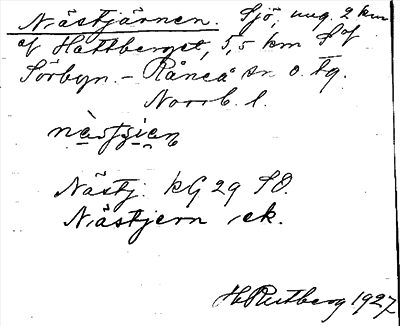 Nästjärnen. Sjö, ung. 2 km
af Hattberget, 5,5 km S af
Sörbyn. – Råneå sn o. tg.
Norrb. l.
Nästj. KG 29 SO.
Nästjern ek.
H. Rutberg 1927